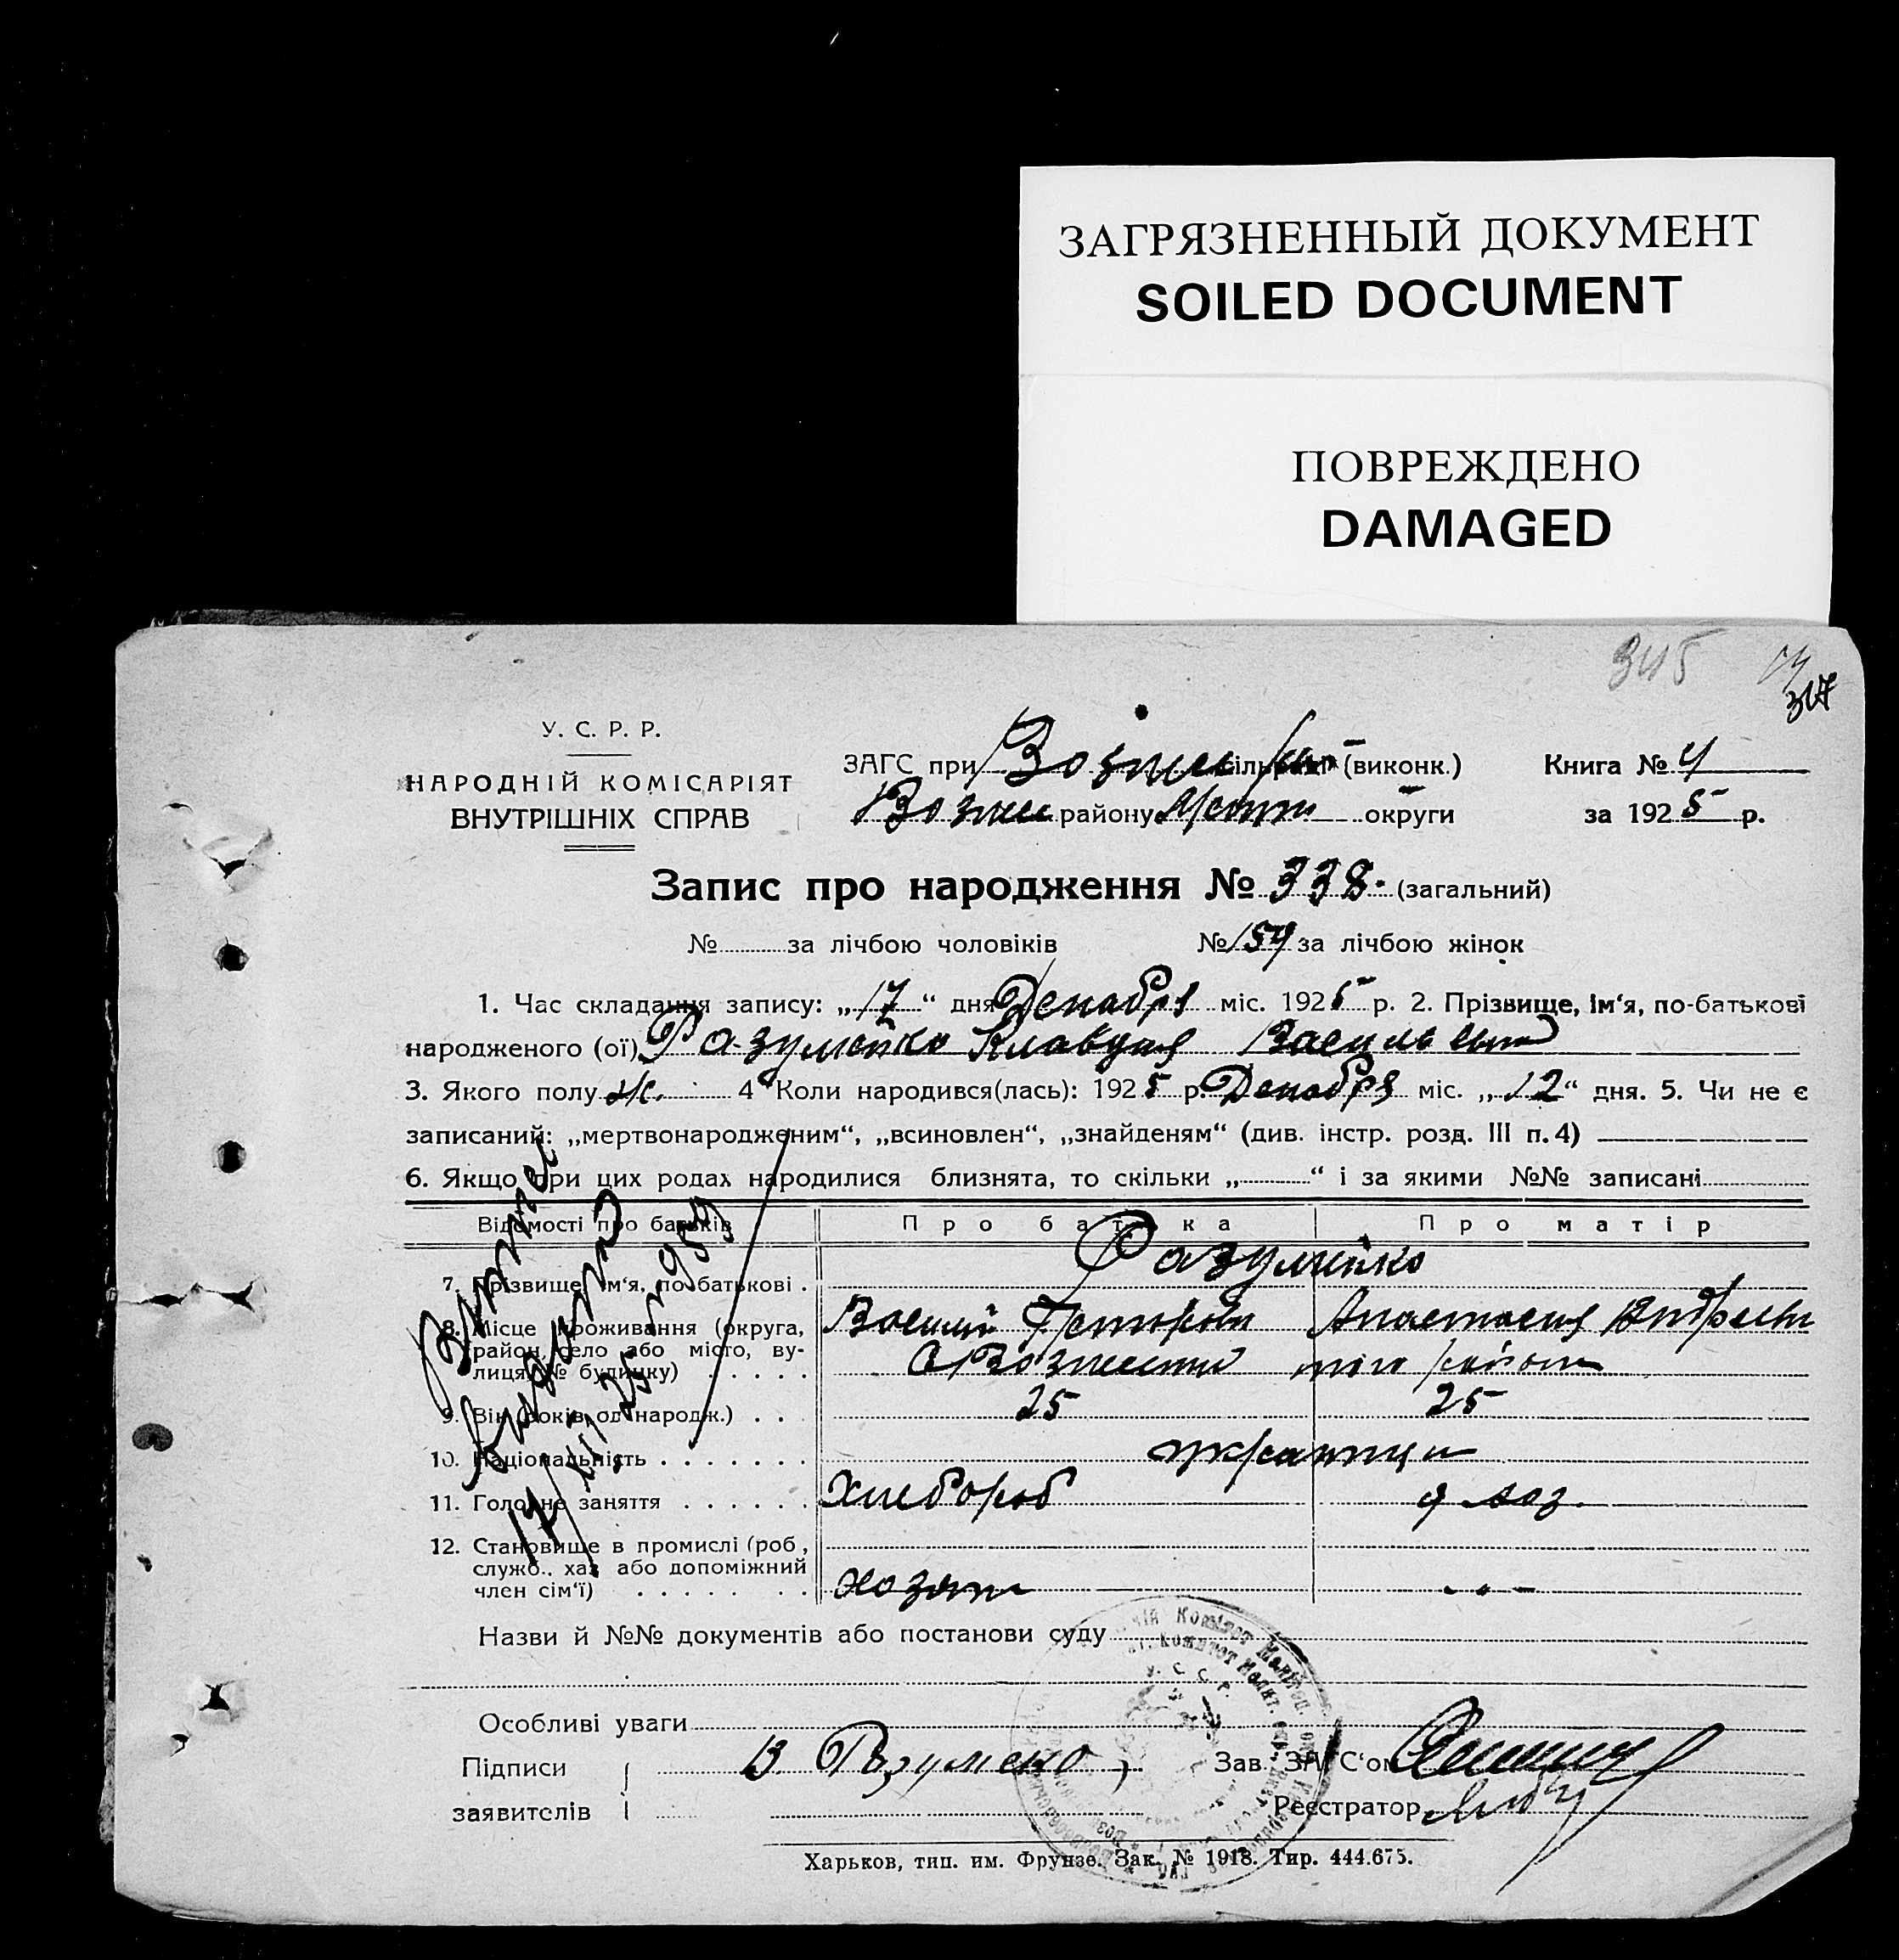 ЗАГРЯЗНЕННЫЙ ДОКУМЕНТ
SOILED DOCUMENT
ПОВРЕЖДЕНО
DAMAGED
345
317
У. С. Р. Р.
НАРОДНІЙ КОМІСАРІЯТ
ВНУТРІШНІХ СПРАВ
ЗАГС при (виконк.)
району округи
Книга № 4
за 1925 р.
Запис про народження № 338. (загальний)
№ за лічбою чоловіків № 159 за лічбою жінок
1. Час складання запису: „17“ дня Декабря міс. 1925 р. 2. Прізвище, ім‘я, по-батькові
народженого (ої) Разумейко Клавдия
3. Якого полу ж. 4 Коли народився(лась): 1925 р. Декабря міс. „12“ дня. 5. Чи не є
записаний: „мертвонародженим“, „всиновлен“, „знайденям“ (див. інстр. розд. III п. 4)
6. Якщо при цих родах народилися близнята, то скільки „ “ і за якими №№ записані
Відомості про батьків Про батька Про матір
7. Прізвище, ім‘я, по-батькові . Разумейко
8. Місце проживання (округа, Василий Анастасия
район, село або місто, ву-
лиця, № будинку) . . . . .
9. Вік (років од народж.) . . 25 25
10. Національність . . . . . . .
11. Головне заняття . . . . . . Хлебороб д хоз.
12. Становище в промислі (роб,
служб.. хаз або допоміжний
член сім‘ї) . . . . . . . хозяин
Назви й №№ документів або постанови суду
Особливі уваги
Підписи В Разумейко Зав. ЗАГС‘ом
заявителів Реєстратор
Харьков, тип. им. Фрунзе. Зак. № 1918. Тир. 444.675.